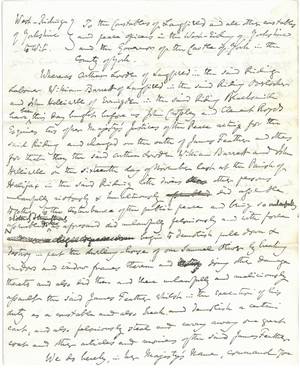 West-Riding } To the Constables of Langfield and all other constables
of Yorkshire } and peace officers in the West-Riding of Yorkshire
to Wit. } and the Governor of the Castle of York in the
County of York
Whereas Arthur of Langfield in the said Riding
labourer William Barrett of Langfield in the said Riding
and John Helliwell of in the said Riding
have this day brought before us John and Royds
Esquires two of her Majesty's Justices of the Peace acting for the
said Riding and charged on the oaths of James Feather and others
for that they the said Arthur William Barrett and John
Helliwell on the sixteenth day of November last at the Parish of
Halifax in the said Riding with other persons
unlawfully riotously &
together to the disturbance of the public peace and being so unlawfully
aforesaid did unlawfully feloniously and with force
begin to demolish pull down &
destroy in part the dwelling-house of one Samuel by breaking
windows and window frames thereon and doing other damage
thereto and also did then and there unlawfully and maliciously
assault the said James Feather whilst in the execution of his
duty as a constable and also break and demolish a certain
cart, and also feloniously steal and carry away one great
coat and other articles and monies of the said James Feather.
We do hereby, in her Majesty's Name, command you